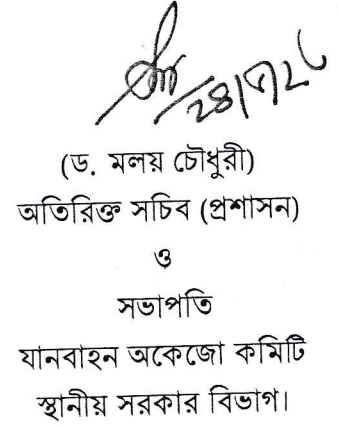 (ড. মলয় চৌধুরী)
অতিরিক্ত সচিব (প্রশাসন)
ও
সভাপতি
যানবাহন অকেজো কমিটি
স্থানীয় সরকার বিভাগ।